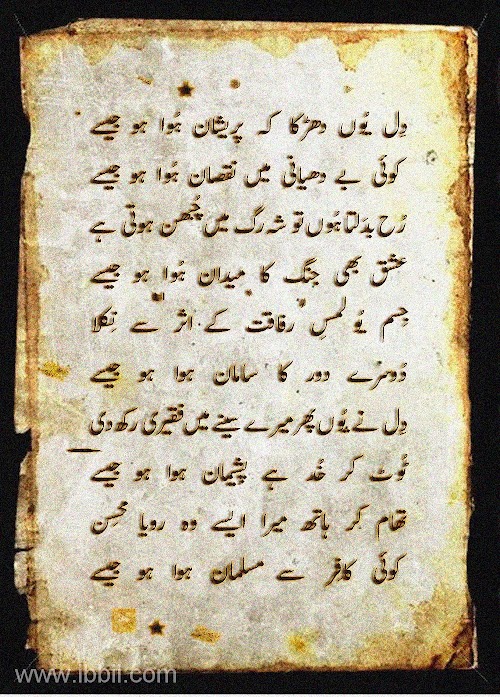 دِل یُوں دھڑکا کہ پریشان ہُوا ہو جیسے
کوئی بے دھیانی میں نقصان ہُوا ہو جیسے
رُخ بدلتا ہُوں تو شہ رگ میں چُبھن ہوتی ہے
عشق بھی جنگ کا میدان ہُوا ہو جیسے
جِسم یُو لمسِ رفاقت کے اثر سے نِکلا
دُوسرے دور کا سامان ہوا ہو جیسے
دِل نے یُوں پھر میرے سینے میں فقیری رکھ دی
ٹُوٹ کر خُد ہے پشیمان ہوا ہو جیسے
تھام کر ہاتھ میرا ایسے وہ رویا محسِن
کوئی کافر سے مسلمان ہوا ہو جیسے
www.ibbii.com